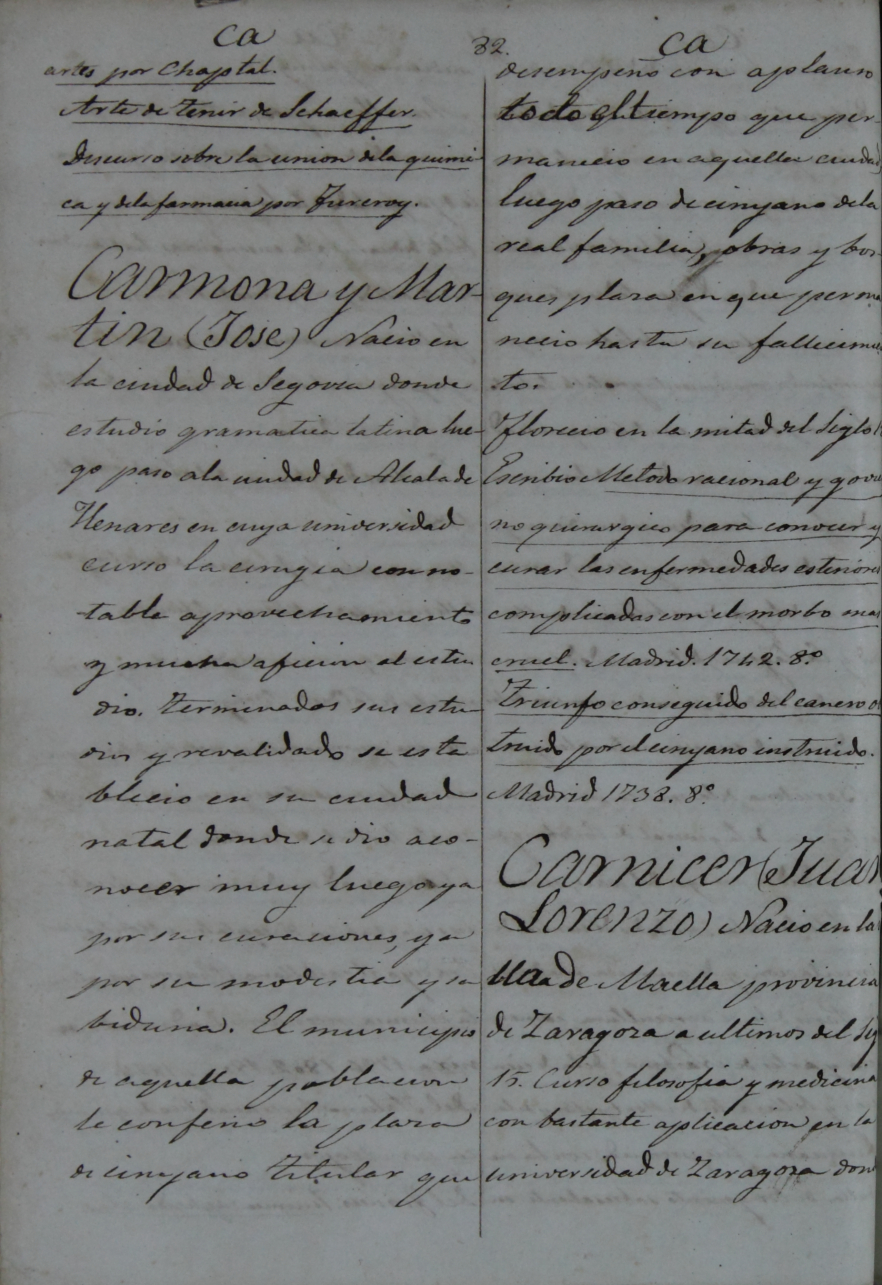 ca
82.
ca
artes por Chaptal.
Arte de tenir de Schaeffer.
Discurso sobre la union dela quimi
ca y dela farmacia por Furcroy.
Carmona y Mar-
tin (Jose) Nacio en
la ciudad de Segovia donde
estudio gramatica latina lue-
go paso ala ciudad de Alcala de
Henares en cuya universidad
curso la cirugia con no-
table aprovechamiento
y mucha aficion al estu
dio. Terminados sus estu-
dios y revalidado se esta
blecio en su ciudad
natal donde se dio aco-
nocer muy luego ya
por sus curaciones, ya
por su modestia y sa
biduria. El municipio
de aquella poblacion
le confirio la plaza
de cirujano titular que
desempeño con aplauso
todo el tiempo que per-
manecio en aquella ciudad
luego paso de cirujano dela
real familia, obras y bos-
ques plaza en que perma
necio hasta su fallecimien
to.
Florecio en la mitad del siglo
Escribio Metodo racional y govier
no quirurgico para conocer y
curar las enfermedades esteriores
complicadas con el morbo mas
cruel. Madrid. 1742. 8.º
Triunfo conseguido del cancro o
truido por el cirujano instruido.
Madrid 1738. 8º
Carnicer (Juan
Lorenzo) Nacio en la
lla de Maella provincia
de Zaragoza a ultimos del sig
15. Curso filosofia y medicina
con bastante aplicacion en la
universidad de Zaragoza dond